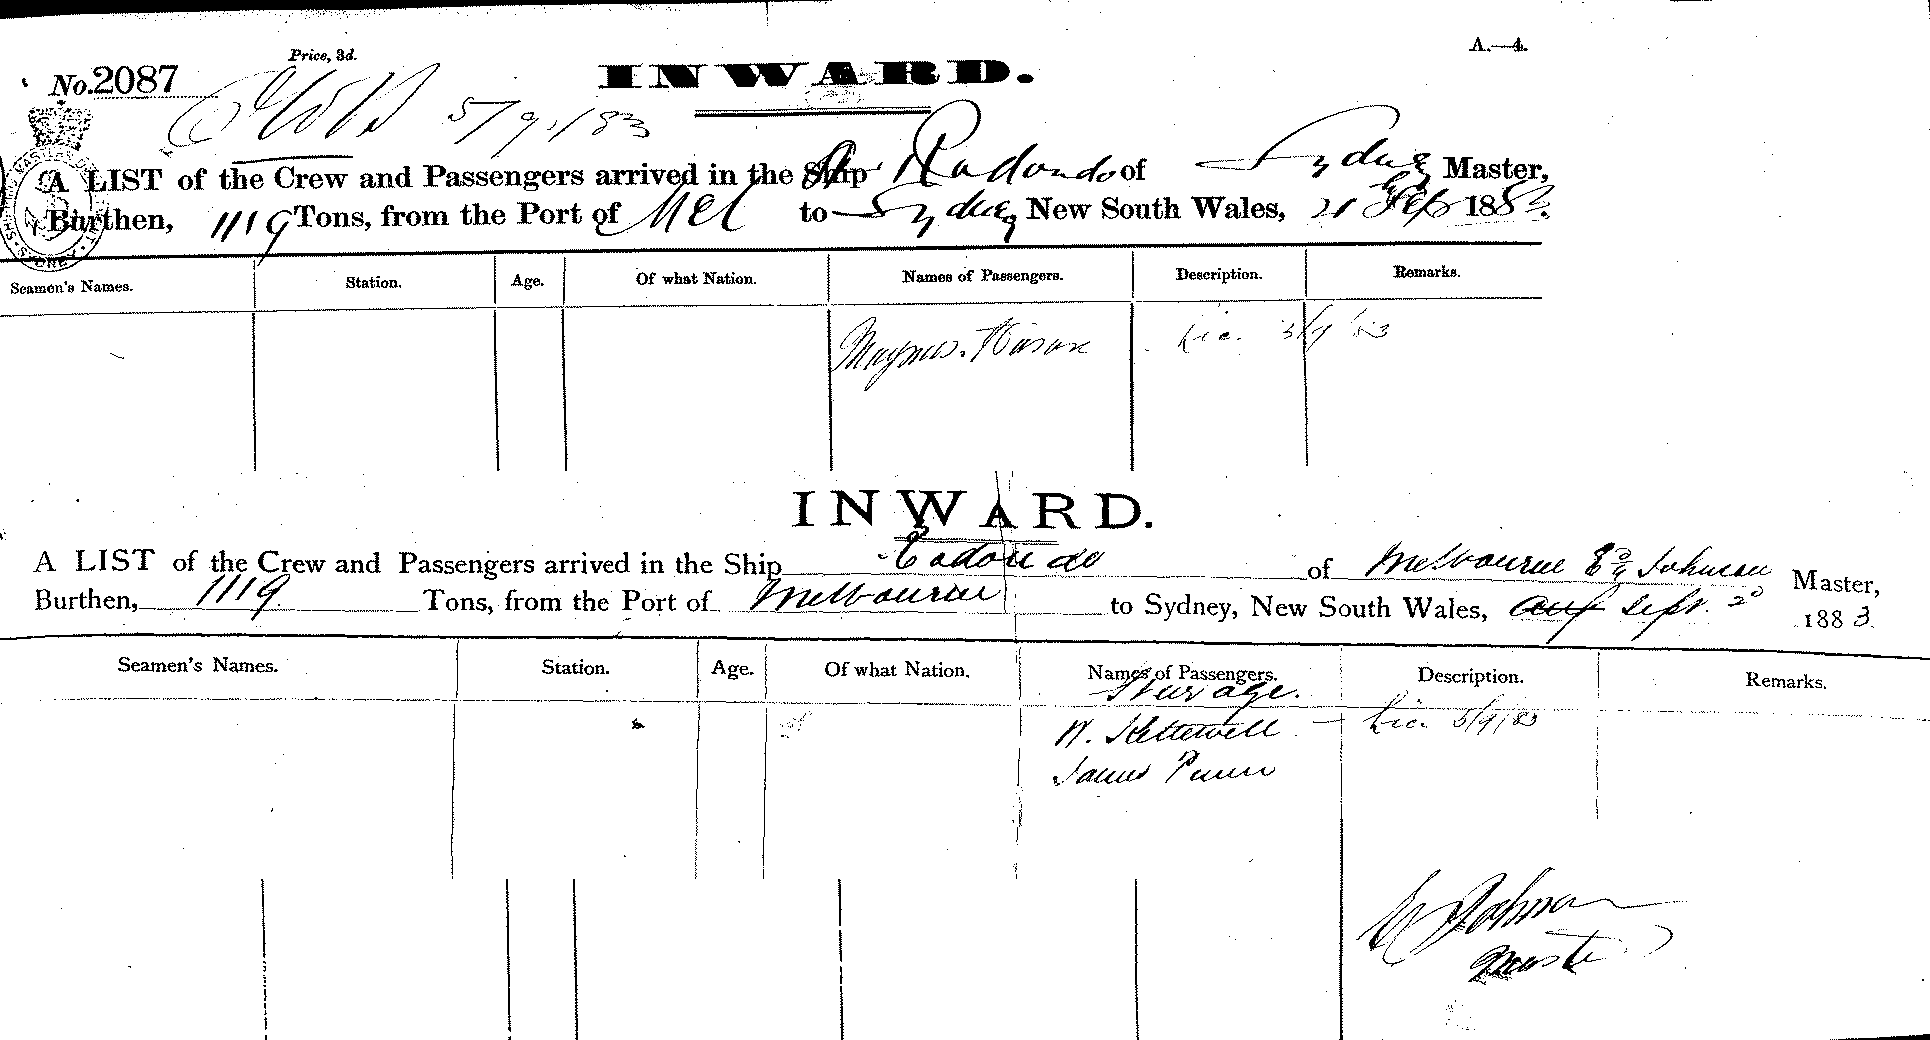 Price, 3d.
A.—4.
No. 2087
INWARD.
5/9/83
A LIST of the Crew and Passengers arrived in the Ship Rodondo of Sydney Master,
Burthen, 1119 Tons, from the Port of Mel to Sydney New South Wales, Sep 1883.
Seamen's Names. Station. Age. Of what Nation. Names of Passengers. Description. Remarks.
Magnus Lic. 5/9/83
INWARD.
A LIST of the Crew and Passengers arrived in the Ship Rodondo of Melbourne Johnson Master,
Burthen, 1119 Tons, from the Port of Melbourne to Sydney, New South Wales, Aug Sept. 1883
Seamen's Names. Station. Age. Of what Nation. Names of Passengers. Description. Remarks.
Steerage.
W. Kettewell Lic. 5/9/83
James
Johnson
Master